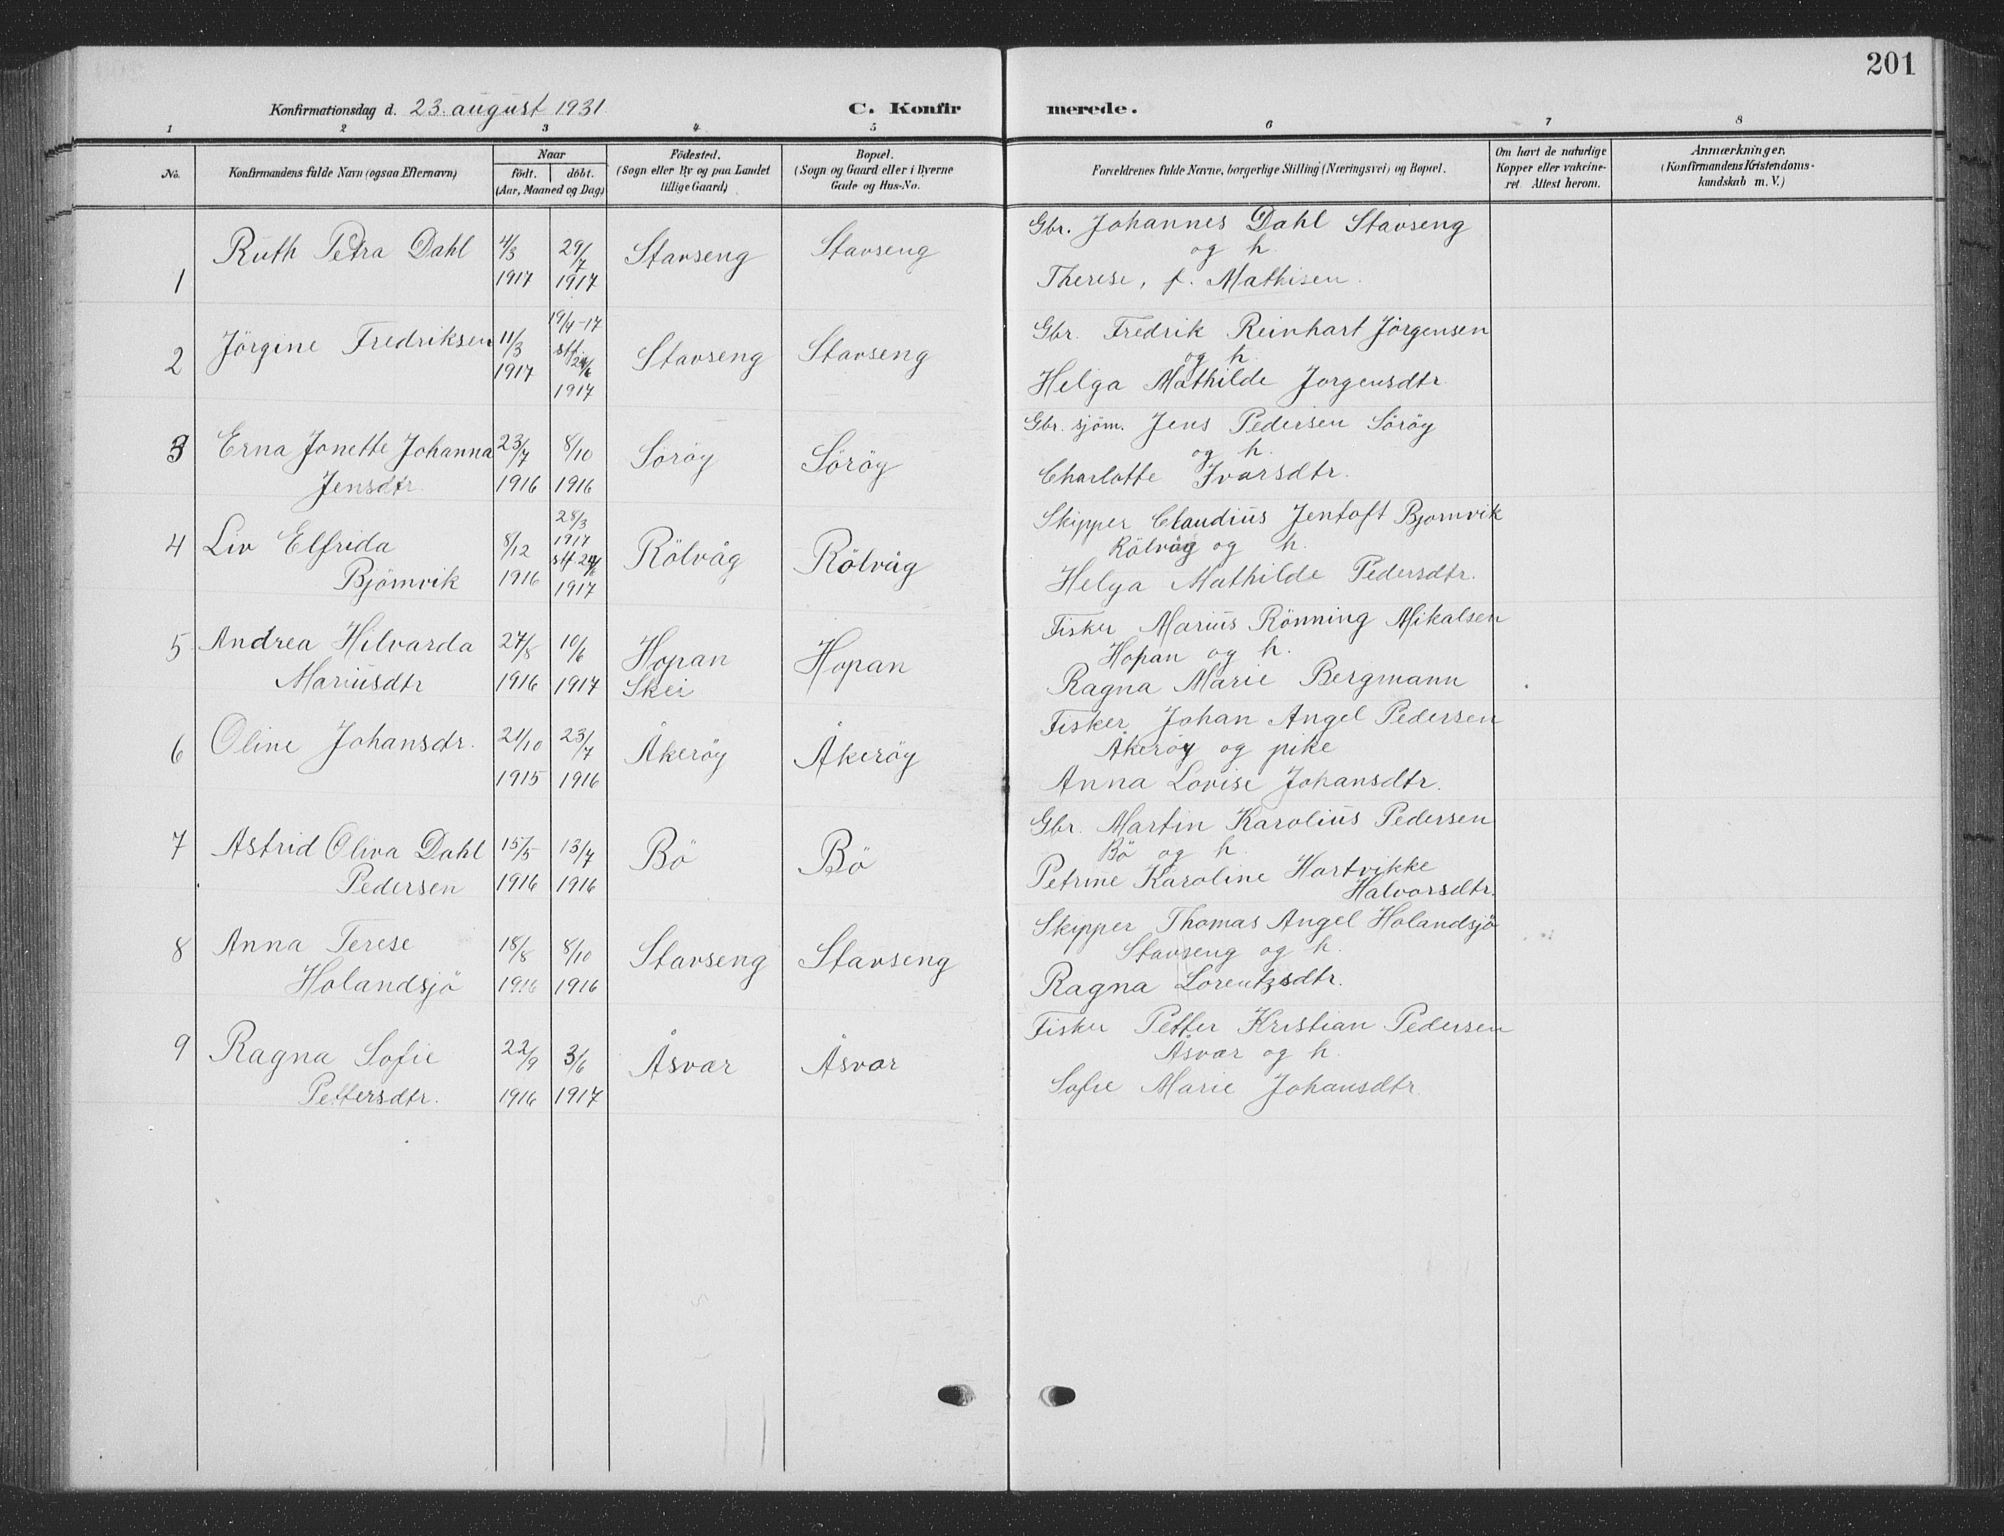 201
Konfirmationsdag d. 23. august 1931. C. Konfirmerede.
1 2 3 4 5 6 7 8
No. Konfirmandens fulde Navn (ogsaa Efternavn) Naar Födested. Bopæl. Forældrenes fulde Navne, borgerlige Stilling (Næringsvei) og Bopæl. Om havt de naturlige Anmærkninger.
födt. döbt. (Sogn eller By og paa Landet (Sogn og Gaard eller i Byerne Kopper eller vakcine- (Konfirmandens Kristendoms-
(Aar, Maaned og Dag) tillige Gaard) Gade og Hus-No. ret. Attest herom. kundskab m. V.)
1 Ruth Petra Dahl 4/3 29/7 Stavseng Stavseng Gbr. Johannes Dahl Stavseng
og h.
1917 1917 Therese, f. Mathisen.
2 Jörgine Fredriksen 11/3 19/4-17 Stavseng Stavseng Gbr. Fredrik Reinhart Jörgensen
stf. 24/6 og h.
1917 1917 Helga Mathilde Jorgensdtr
3 Erna Jonette Johanna 23/7 8/10 Söröy Söröy Gbr. sjöm. Jens Pedersen Söröy
og h.
Jensdtr. 1916 1916 Charlotte Ivarsdtr.
4 Liv Elfrida 8/12 28/3 1917 Rölvåg Rölvåg Skipper Claudius Jentoft Bjornvik
stf 24/6 Rölvåg og h.
Björnvik 1916 1917 Helga Mathilde Pedersdtr.
5 Andrea Hilvarda 27/8 10/6 Hopan Hopan Fisker Marius Rönning Mikalsen
Hopan og h.
Mariusdtr 1916 1917 Skei Ragna Marie Bergmann
6 Oline Johansdr. 21/10 23/7 Åkeröy Åkeröy Fisker Johan Angel Pedersen
Åkeröy og pike
1915 1916 Anna Lovise Johansdtr.
7 Astrid Oliva Dahl 15/5 13/7 Bö Bö Gbr. Martin Karolius Pedersen
Bö og h.
Pedersen 1916 1916 Petrine Karoline Hartvikke
Halvorsdtr.
8 Anna Terese 18/8 8/10 Stavseng Stavseng Skipper Thomas Angel Holandsjö
Stavseng og h.
Holandsjö 1916 1916 Ragna Lorentzsdtr.
9 Ragna Sofie 22/9 3/6 Åsvær Åsvær Fisker Petter Kristian Pedersen
Åsvær og h.
Pettersdtr. 1916 1917 Sofie Marie Johansdtr.